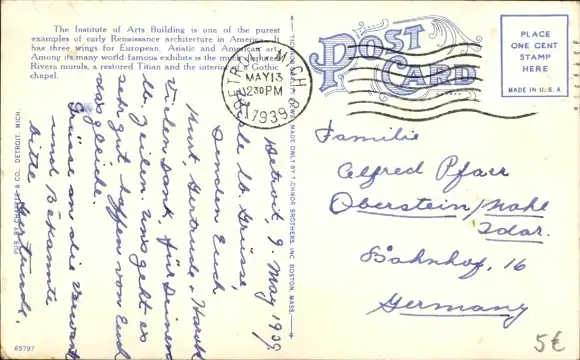 The Institute of Arts Building is one of the purest
examples of early Renaissance architecture in America. It
has three wings for European, Asiatic and American art.
Among its many world-famous exhibits is the much disputed
Rivera murals, a restored Titian and the interior of a Gothic
chapel.
DETROIT, MICH.
MAY 13
2 30 PM
1939
POST CARD
PLACE
ONE CENT
STAMP
HERE
MADE IN U.S.A
Detroit, 9. May 1939.
Viele lb. Grüsse,
senden Euch
Kurt Gertrude, Harold
Vielen Dank, für Deinen
lb. Zeilen. Uns geht es
sehr gut hoffen von Euch
das gleiche.
Grüsse an die Verwandte
und Bekannte
bitte
Familie
Alfred Pfarr
Oberstein/Nahe
Idar.
Bahnhof. 16
Germany
MADE ONLY BY TICHNOR BROTHERS, INC. BOSTON, MASS.
& CO., DETROIT, MICH.
65797
5€